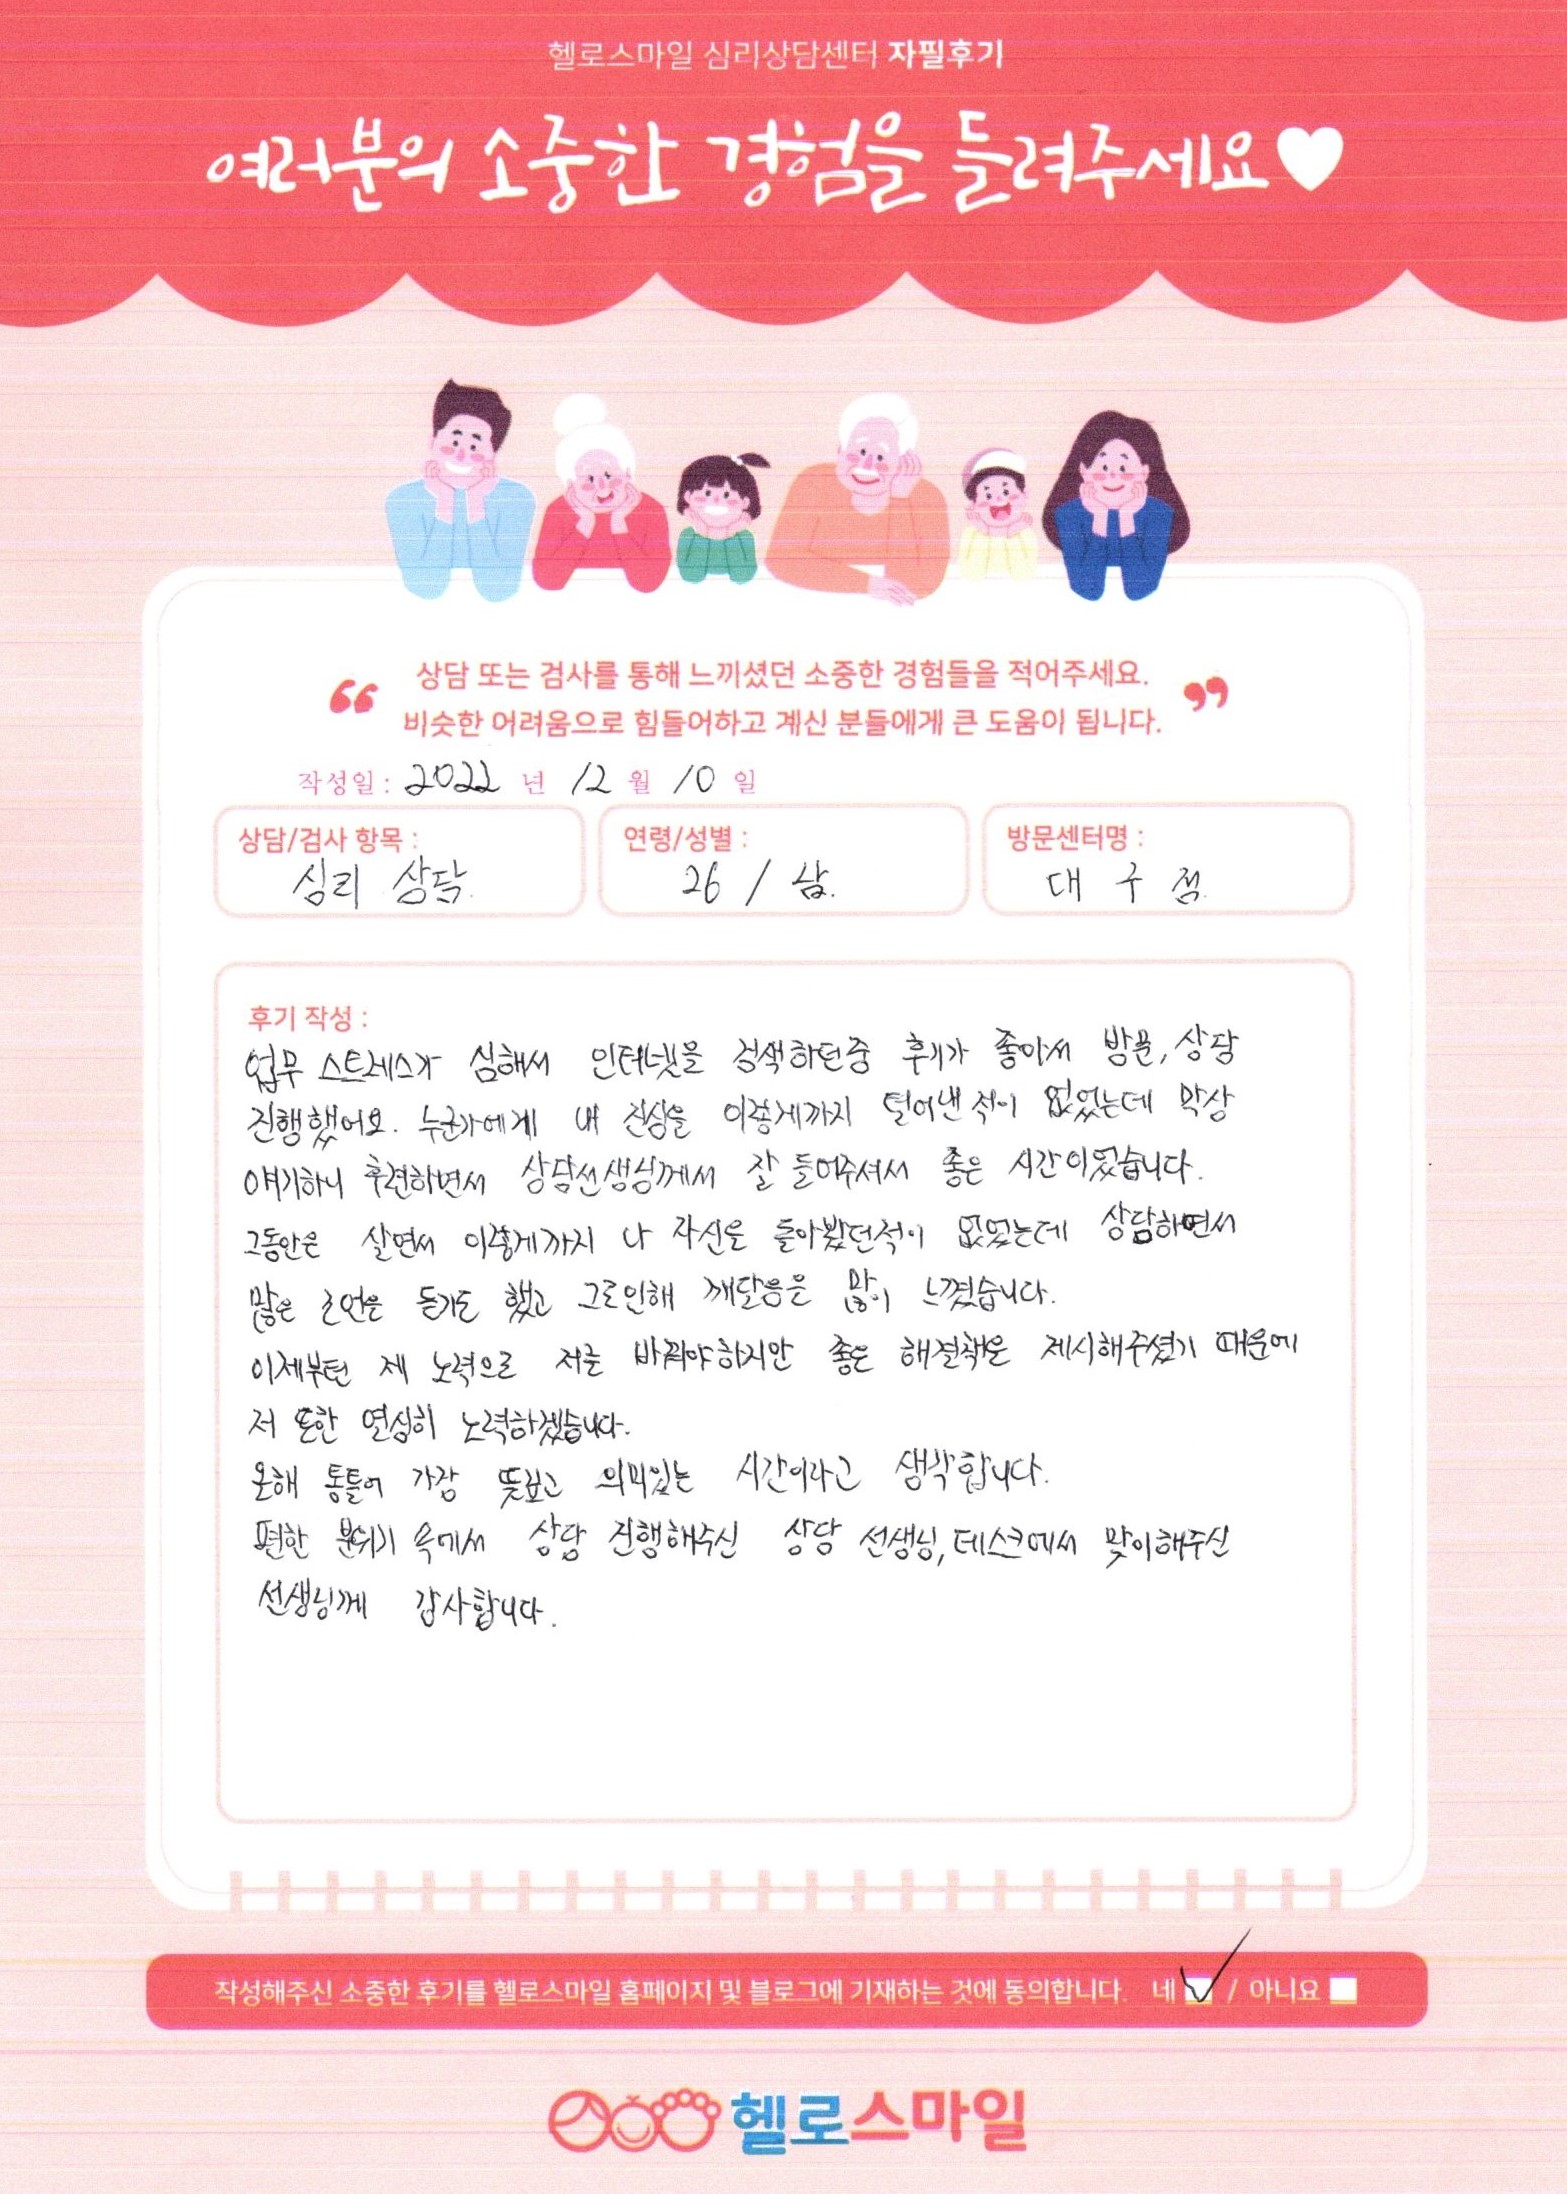 헬로스마일 심리상담센터 자필후기
여러분의 소중한 경험을 들려주세요♥
“ 상담 또는 검사를 통해 느끼셨던 소중한 경험들을 적어주세요. ”
비슷한 어려움으로 힘들어하고 계신 분들에게 큰 도움이 됩니다.
작성일 : 2022 년 12 월 10 일
상담/검사 항목 :
심리 상담.
연령/성별 :
26 / 남.
방문센터명 :
대구점.
후기 작성 :
업무 스트레스가 심해서 인터넷을 검색하던중 후기가 좋아서 방문, 상담
진행했어요. 누군가에게 내 진심을 이렇게까지 털어낸적이 없었는데 막상
얘기하니 후련하면서 상담선생님께서 잘 들어주셔서 좋은 시간이었습니다.
그동안은 살면서 이렇게까지 나 자신을 돌아봤던적이 없었는데 상담하면서
많은 조언을 듣기도 했고 그로인해 깨달음을 많이 느꼈습니다.
이제부턴 제 노력으로 저를 바꿔야하지만 좋은 해결책을 제시해주셨기 때문에
저 또한 열심히 노력하겠습니다.
올해 통틀어 가장 뜻깊고 의미있는 시간이라고 생각합니다.
편한 분위기 속에서 상담 진행해주신 상담 선생님, 데스크에서 맞이해주신
선생님께 감사합니다.
작성해주신 소중한 후기를 헬로스마일 홈페이지 및 블로그에 기재하는 것에 동의합니다. 네 / 아니요
헬로스마일